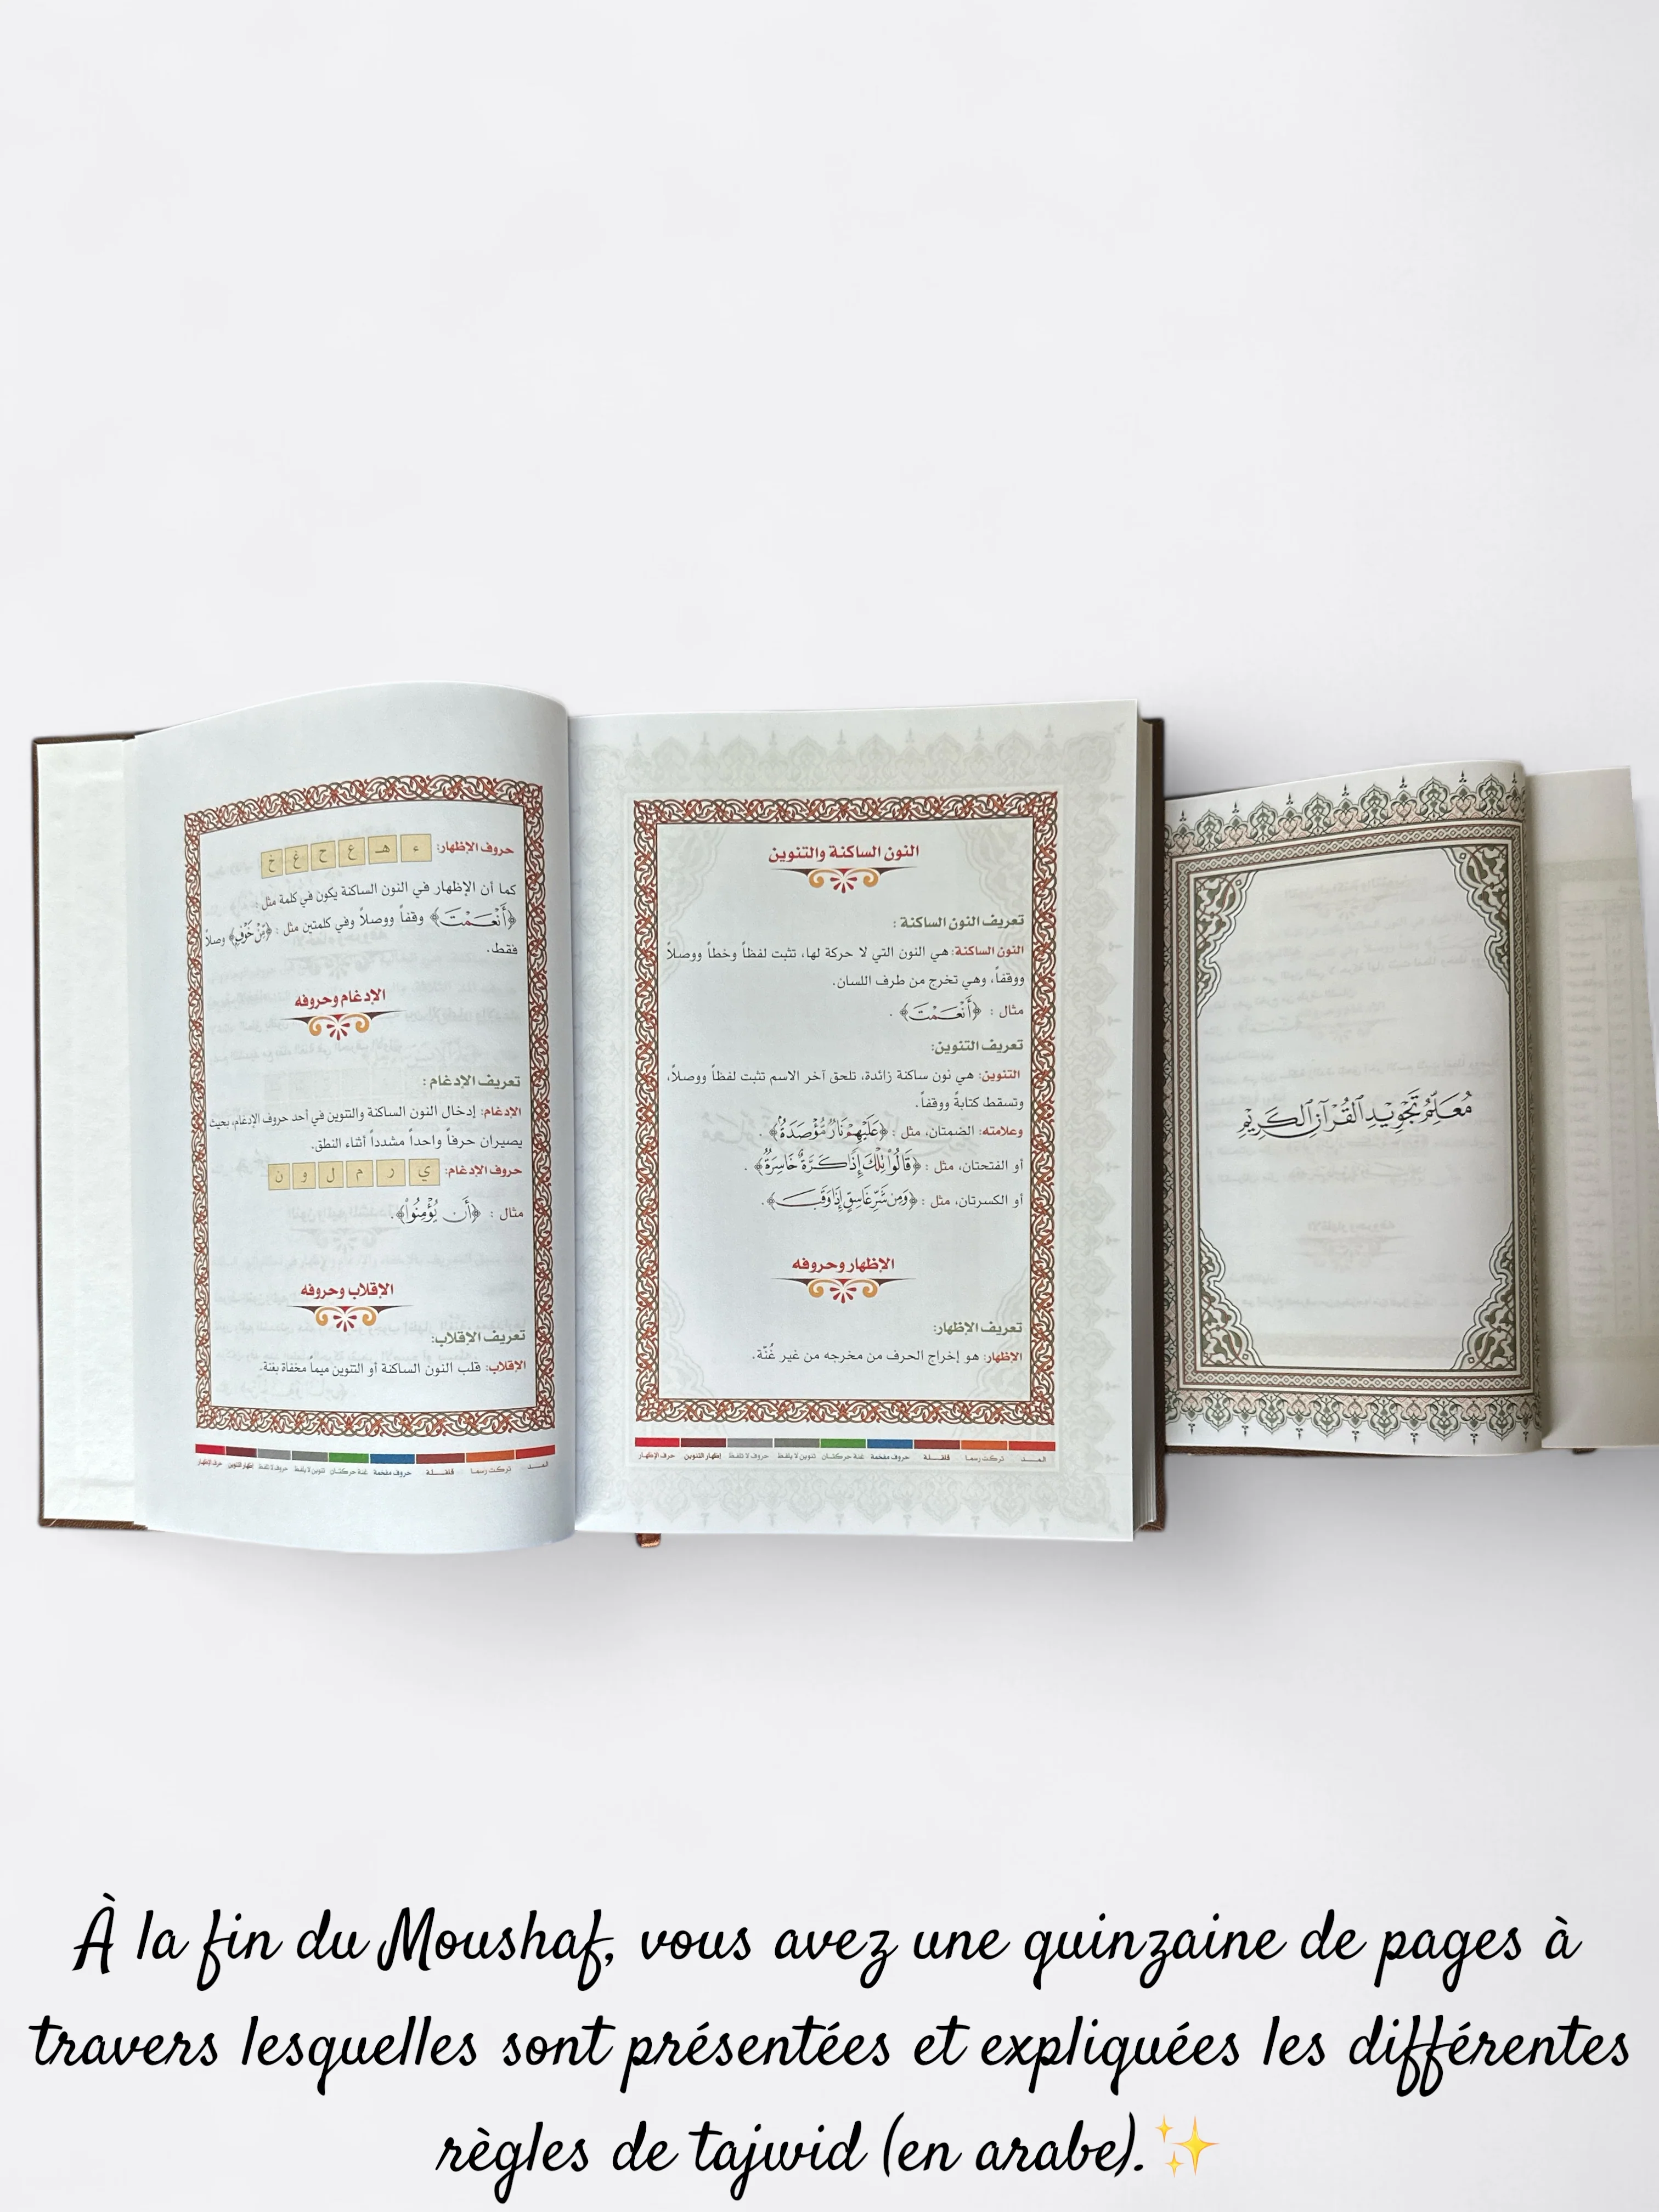 النون الساكنة والتنوين
تعريف النون الساكنة :
النون الساكنة: هي النون التي لا حركة لها، تثبت لفظاً وخطاً ووصلاً
ووقفاً، وهي تخرج من طرف اللسان.
مثال : ﴿أَنْعَمْتَ﴾ .
تعريف التنوين:
التنوين: هي نون ساكنة زائدة، تلحق آخر الاسم تثبت لفظاً ووصلاً،
وتسقط كتابةً ووقفاً.
وعلامته: الضمتان، مثل : ﴿عَلَيْهِمْ نَارٌ مُّؤْصَدَةٌ﴾ .
أو الفتحتان، مثل : ﴿قَالُواْ تِلْكَ إِذًا كَرَّةٌ خَاسِرَةٌ﴾ .
أو الكسرتان، مثل : ﴿وَمِن شَرِّ غَاسِقٍ إِذَا وَقَبَ﴾ .
الإظهار وحروفه
تعريف الإظهار:
الإظهار: هو إخراج الحرف من مخرجه من غير غُنّة.
المـد تركت رسما قلقلة حروف مفخمة غنة حركتان تنوين لا يلفظ حروف لا تلفظ إظهار التنوين حرف الإظهار
حروف الإظهار: ء هـ ع ح غ خ
كما أن الإظهار في النون الساكنة يكون في كلمة مثل :
﴿أَنْعَمْتَ﴾ وقفاً ووصلاً وفي كلمتين مثل : ﴿مِّنْ خَوْفٍ﴾ وصلاً
فقط.
الإدغام وحروفه
تعريف الإدغام :
الإدغام: إدخال النون الساكنة والتنوين في أحد حروف الإدغام، بحيث
يصيران حرفاً واحداً مشدداً أثناء النطق.
حروف الإدغام: ي ر م ل و ن
مثال : ﴿أَن يُؤْمِنُواْ﴾.
الإقلاب وحروفه
تعريف الإقلاب:
الإقلاب: قلب النون الساكنة أو التنوين ميماً مخفاة بغنة.
المـد تركت رسما قلقلة حروف مفخمة غنة حركتان تنوين لا يلفظ حروف لا تلفظ إظهار التنوين حرف الإظهار
مُعَلِّمُ تَجْوِيدِ ٱلْقُرْآنِ ٱلْكَرِيْمِ
À la fin du Moushaf, vous avez une quinzaine de pages à
travers lesquelles sont présentées et expliquées les différentes
règles de tajwid (en arabe).✨